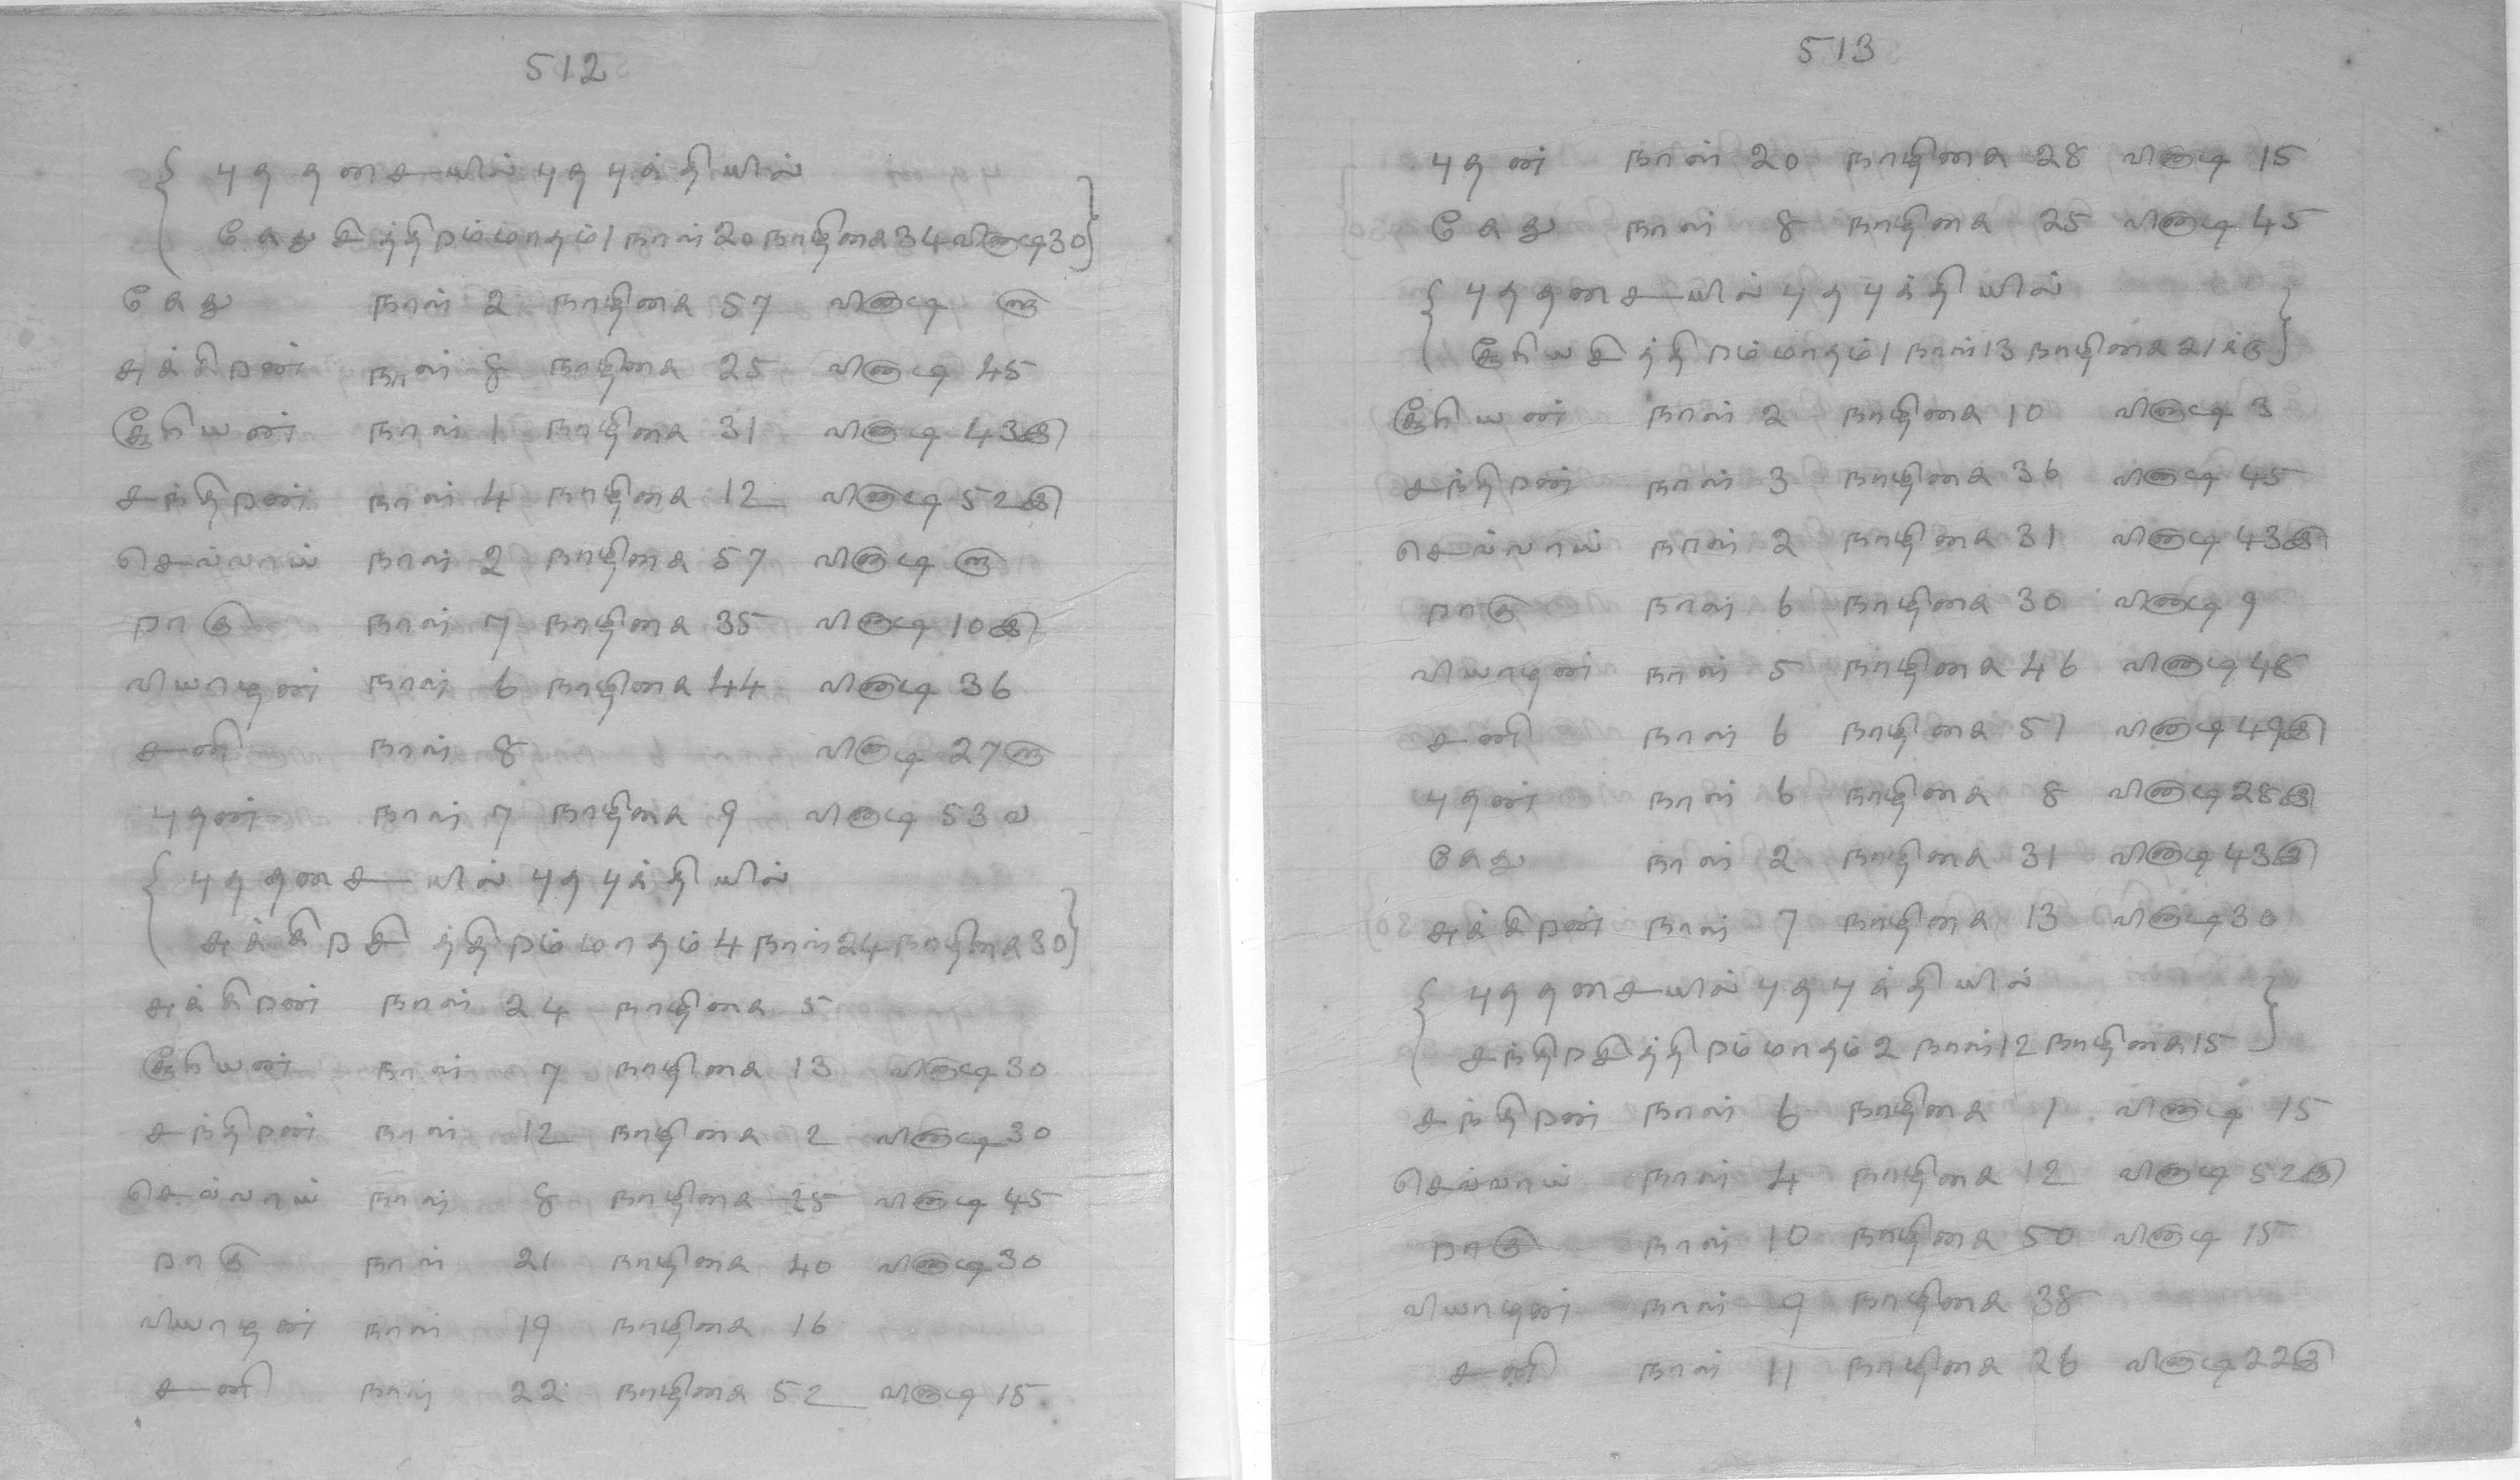 512
{ புத தசையில் புத புக்தியில்
கேது சித்திறம் மாதம் 1 நாள் 20 நாழிகை 34 விநாடி 30 }
கேது நாள் 2 நாழிகை 57 விநாடி
சுக்கிறன் நாள் 8 நாழிகை 25 விநாடி 45
சூரியன் நாள் 1 நாழிகை 31 விநாடி 43
சந்திறன் நாள் 4 நாழிகை 12 விநாடி 52
செவ்வாய் நாள் 2 நாழிகை 57 விநாடி
றாகு நாள் 7 நாழிகை 35 விநாடி 10
வியாழன் நாள் 6 நாழிகை 44 விநாடி 36
சனி நாள் 8 விநாடி 27
புதன் நாள் 7 நாழிகை 9 விநாடி 53 வ
{ புத தசையில் புத புக்தியில்
சுக்கிற சித்திறம் மாதம் 4 நாள் 24 நாழிகை 30 }
சுக்கிறன் நாள் 24 நாழிகை 5
சூரியன் நாள் 7 நாழிகை 13 விநாடி 30
சந்திறன் நாள் 12 நாழிகை 2 விநாடி 30
செவ்வாய் நாள் 8 நாழிகை 25 விநாடி 45
றாகு நாள் 21 நாழிகை 40 விநாடி 30
வியாழன் நாள் 19 நாழிகை 16
சனி நாள் 22 நாழிகை 52 விநாடி 15
513
புதன் நாள் 20 நாழிகை 28 விநாடி 15
கேது நாள் 8 நாழிகை 25 விநாடி 45
{ புத தசையில் புத புக்தியில்
சூரிய சித்திறம் மாதம் 1 நாள் 13 நாழிகை 21 }
சூரியன் நாள் 2 நாழிகை 10 விநாடி 3
சந்திறன் நாள் 3 நாழிகை 36 விநாடி 45
செவ்வாய் நாள் 2 நாழிகை 31 விநாடி 43
றாகு நாள் 6 நாழிகை 30 விநாடி 9
வியாழன் நாள் 5 நாழிகை 46 விநாடி 48
சனி நாள் 6 நாழிகை 51 விநாடி 49
புதன் நாள் 6 நாழிகை 8 விநாடி 28
கேது நாள் 2 நாழிகை 31 விநாடி 43
சுக்கிறன் நாள் 7 நாழிகை 13 விநாடி 30
{ புத தசையில் புத புக்தியில்
சந்திற சித்திறம் மாதம் 2 நாள் 12 நாழிகை 15 }
சந்திறன் நாள் 6 நாழிகை 1 விநாடி 15
செவ்வாய் நாள் 4 நாழிகை 12 விநாடி 52
றாகு நாள் 10 நாழிகை 50 விநாடி 15
வியாழன் நாள் 9 நாழிகை 38
சனி நாள் 11 நாழிகை 26 விநாடி 22